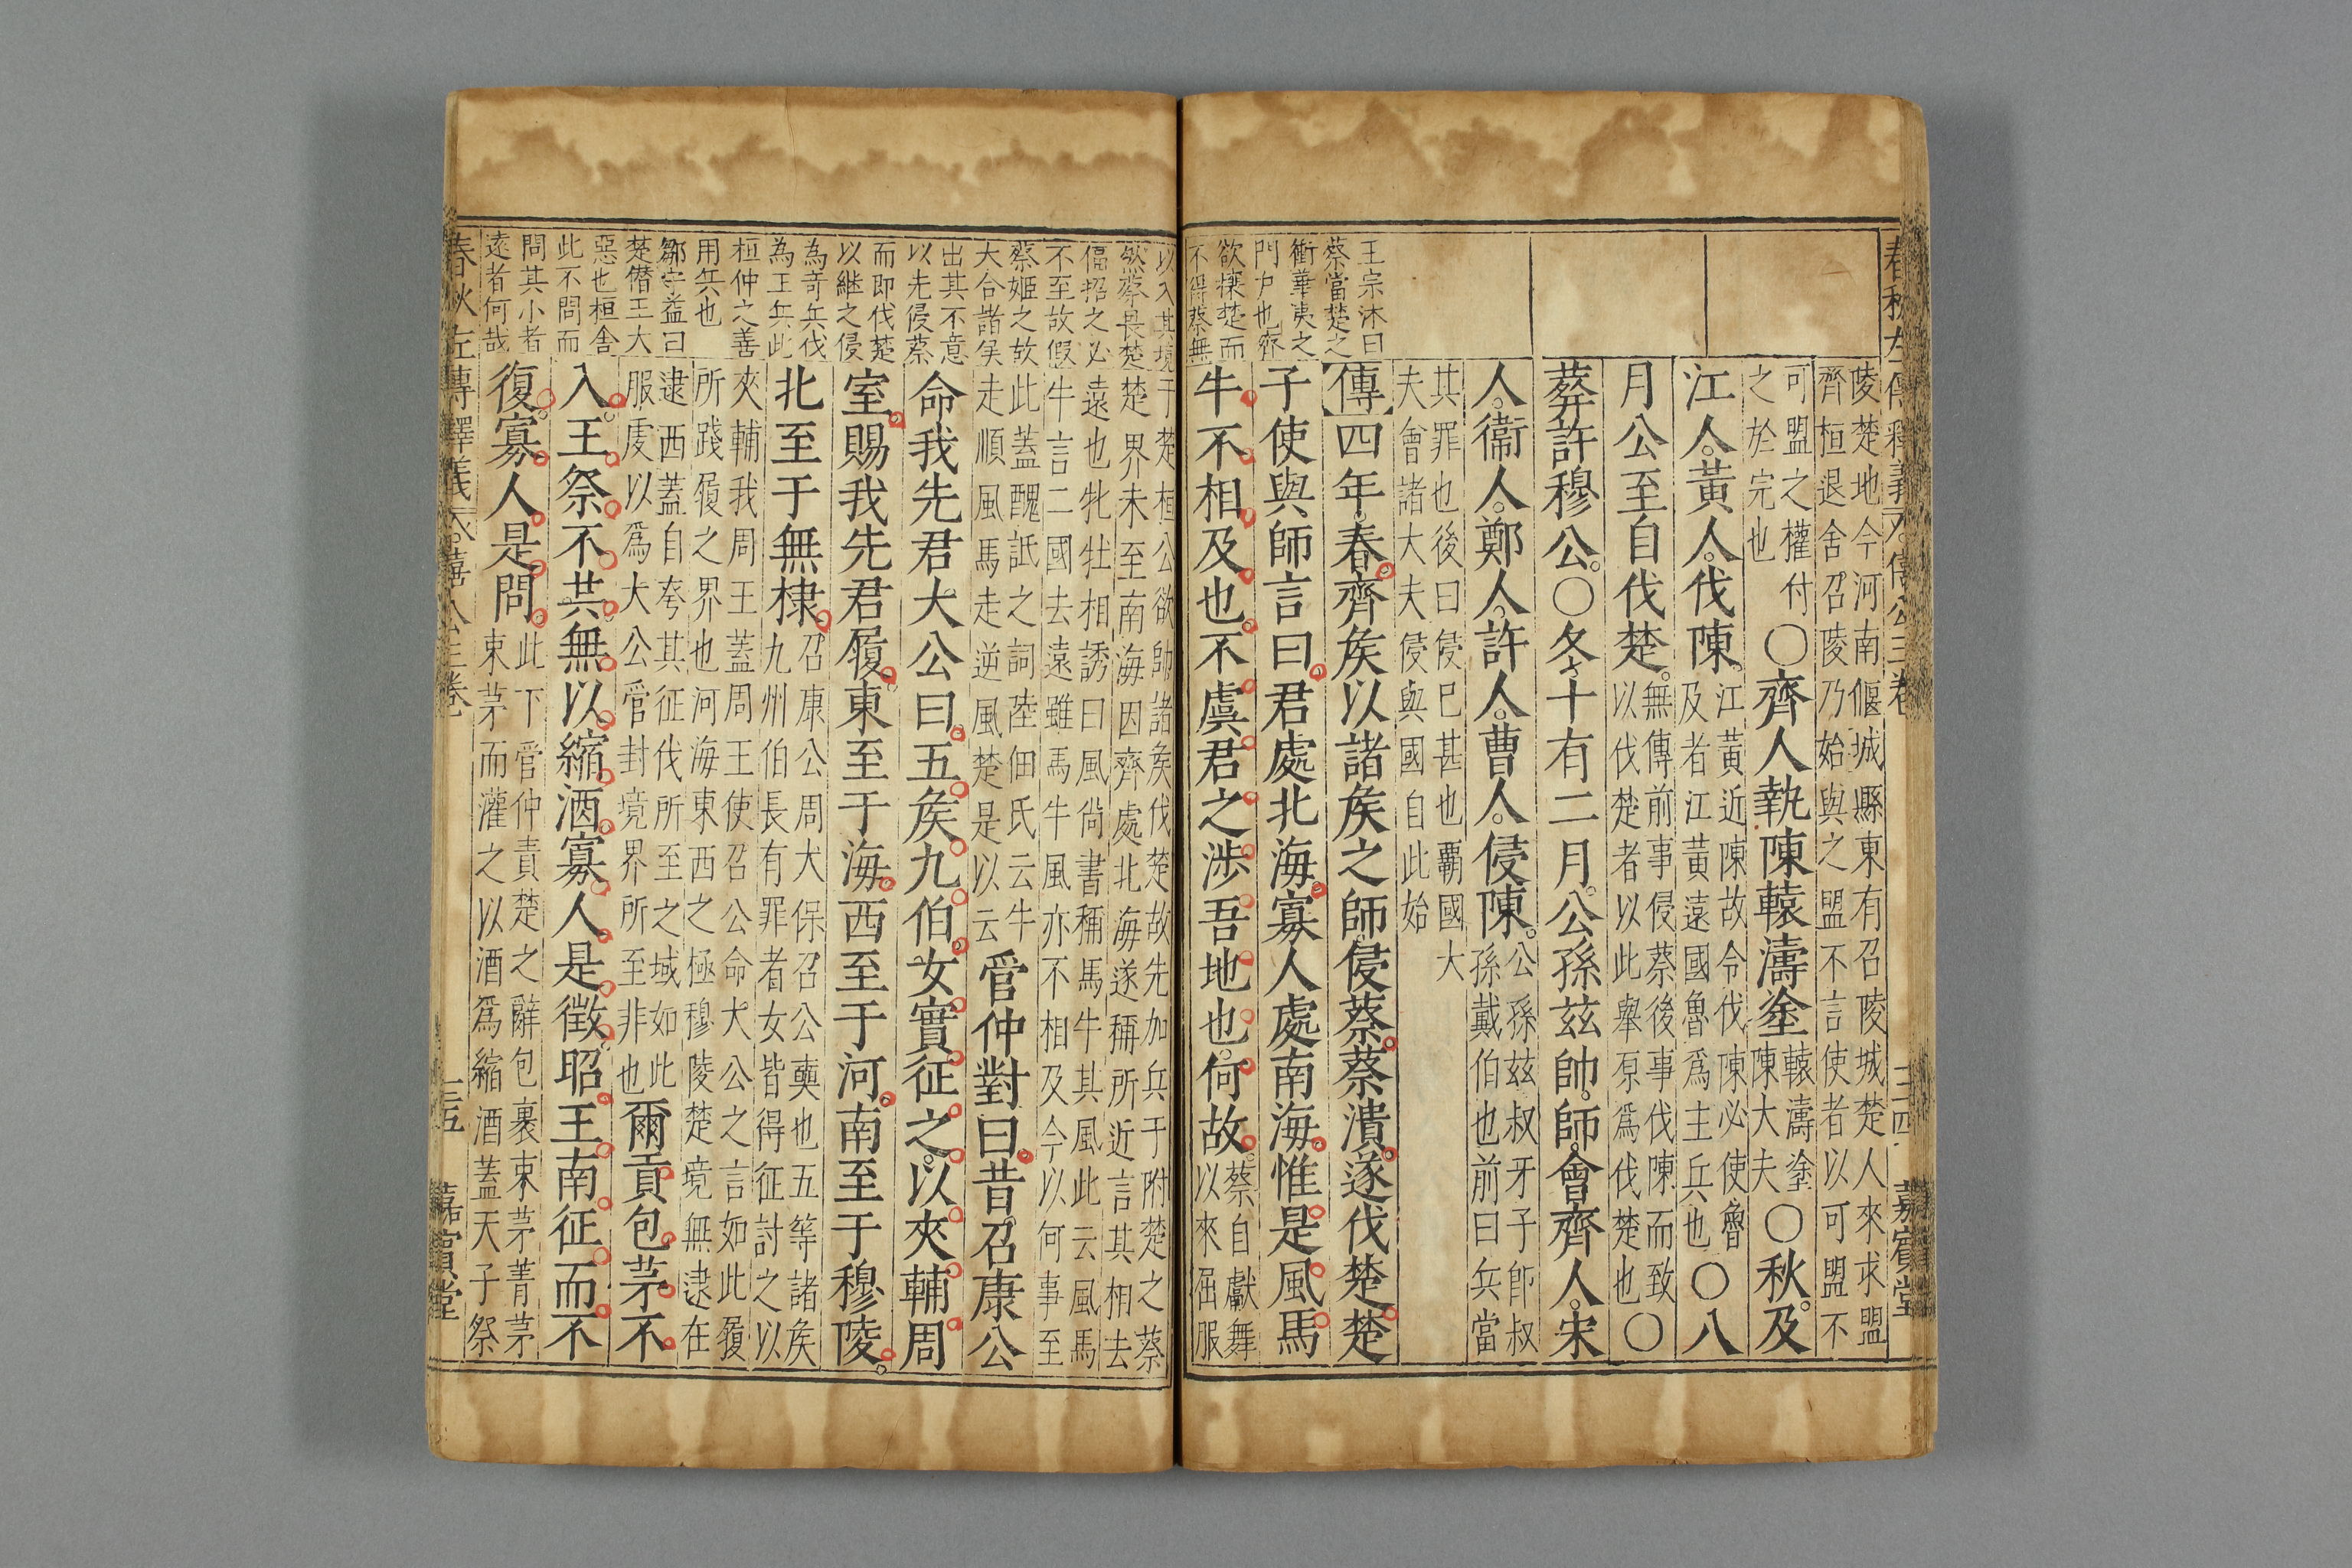 陵楚地今河南偃城縣東有召陵城楚人來求盟
齊桓退舍召陵乃始與之盟不言使者以可盟不
可盟之權付
之於完也
○齊人執陳轅濤塗
轅濤塗
陳大夫
○秋及
江人黃人伐陳
江黃近陳故令伐陳必使魯
及者江黃遠國魯爲主兵也
○八
月公至自伐楚
無傳前事侵蔡後事伐陳而致
以伐楚者以此舉原爲伐楚也
○
葬許穆公○冬十有二月公孫茲帥師會齊人宋
人衞人鄭人許人曹人侵陳
公孫茲叔牙子卽叔
孫戴伯也前曰兵當
其罪也後曰侵已甚也覇國大
夫會諸大夫侵與國自此始
傳四年春齊矦以諸矦之師侵蔡蔡潰遂伐楚楚
子使與師言曰君處北海寡人處南海惟是風馬
牛不相及也不虞君之涉吾地也何故
蔡自獻舞
以來屈服
王宗沐曰
蔡當楚之
衝華夷之
門戶也齊
欲攘楚而
不得蔡無
以入其境
然蔡畏楚
偪招之必
不至故假
蔡姬之故
大合諸矦
出其不意
以先侵蔡
而即伐楚
以継之侵
為奇兵伐
為王兵此
桓仲之善
用兵也
鄒守益曰
楚僣王大
惡也桓舍
此不問而
問其小者
遠者何哉
于楚桓公欲帥諸矦伐楚故先加兵于附楚之蔡
楚界未至南海因齊處北海遂稱所近言其相去
遠也牝牡相誘曰風尙書稱馬牛其風此云風馬
牛言二國去遠雖馬牛風亦不相及今以何事至
此蓋醜詆之詞陸佃氏云牛
走順風馬走逆風楚是以云
管仲對曰昔召康公
命我先君大公曰五矦九伯女實征之以夾輔周
室賜我先君履東至于海西至于河南至于穆陵
北至于無棣
召康公周大保召公奭也五等諸矦
九州伯長有罪者女皆得征討之以
夾輔我周王蓋周王使召公命大公之言如此履
所踐履之界也河海東西之極穆陵楚境無逮在
逮西蓋自夸其征伐所至之域如此
服虔以爲大公官封境界所至非也
爾貢包茅不
入王祭不共無以縮酒寡人是徵昭王南征而不
復寡人是問
此下管仲責楚之辭包裹束茅菁茅
束茅而灌之以酒爲縮酒蓋天子祭
三五
嘉賓堂